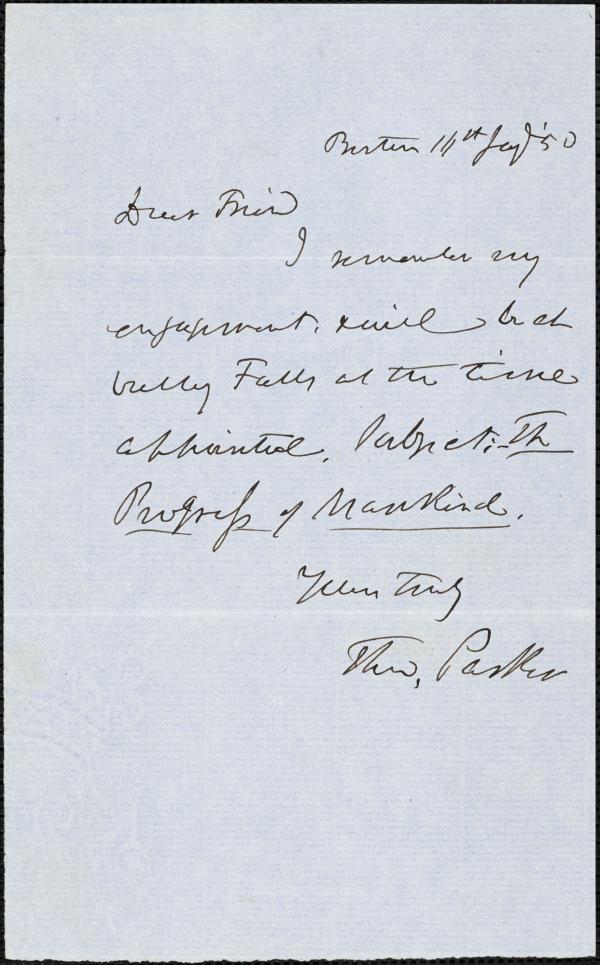 Boston 14th Jany '50
Dear Friend
I remember my
engagement. & will be at
Valley Falls at the time
appointed. Subject: The
Progress of Mankind.
Yours truly
Theo, Parker